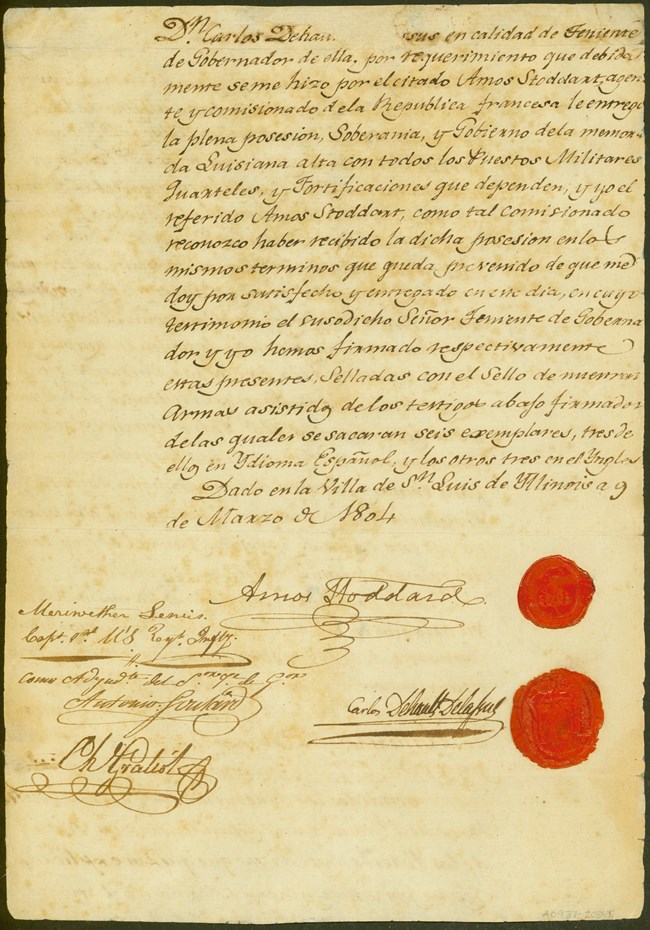 Dn Carlos Dehau sus en calidad de Teniente
de Gobernador de ella, por requerimiento que debida
mente seme hizo por el citado Amos Stoddart, agen
te y comisionado dela Republica francesa le entrego
la plena posesion, Soberania, y Gobierno dela memora
da Luisiana alta con todos los Puestos Militares
Quarteles, y Fortificaciones que dependen, y yo el
referido Amos Stoddart, como tal comisionado
reconozco haber recibido la dicha posesion en los
mismos terminos que queda prevenido de que me
doy por satisfecho y entregado en este dia, en cuyo
testimonio el susodicho Señor Teniente de Goberna
dor y yo hemos firmado respectivamente
estas presentes, Selladas con el Sello de nuestras
Armas asistidos de los testigos abajo firmados
delas quales se sacaran seis exemplares, tres de
ellos en Ydioma Español, y los otros tres en el Yngles
Dado en la Villa de Sn Luis de Yllinois a 9
de Marzo de 1804
Amos Stoddard
Meriwether Lewis.
Capt. 1st U'S Regt. Infty.
como Adyudte del Sor
Antonio Soulard
Carlos Dehault Delassus
Ch Gratiot